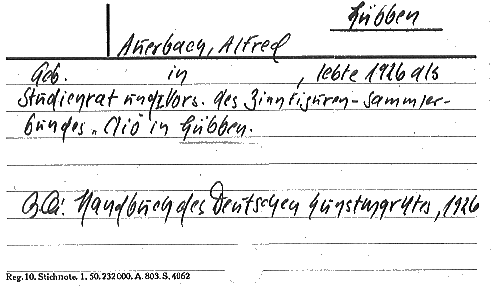 Lübben
Auerbach, Alfred
Geb. in , lebte 1926 als
Studienrat und I. Vors. des Zinnfiguren-Sammler-
bundes „Clio" in Lübben.
Qu: Handbuch des Deutschen Kunstmarktes, 1926
Reg. 10. Stichnote. 1. 50. 232 000. A. 803. S. 4062